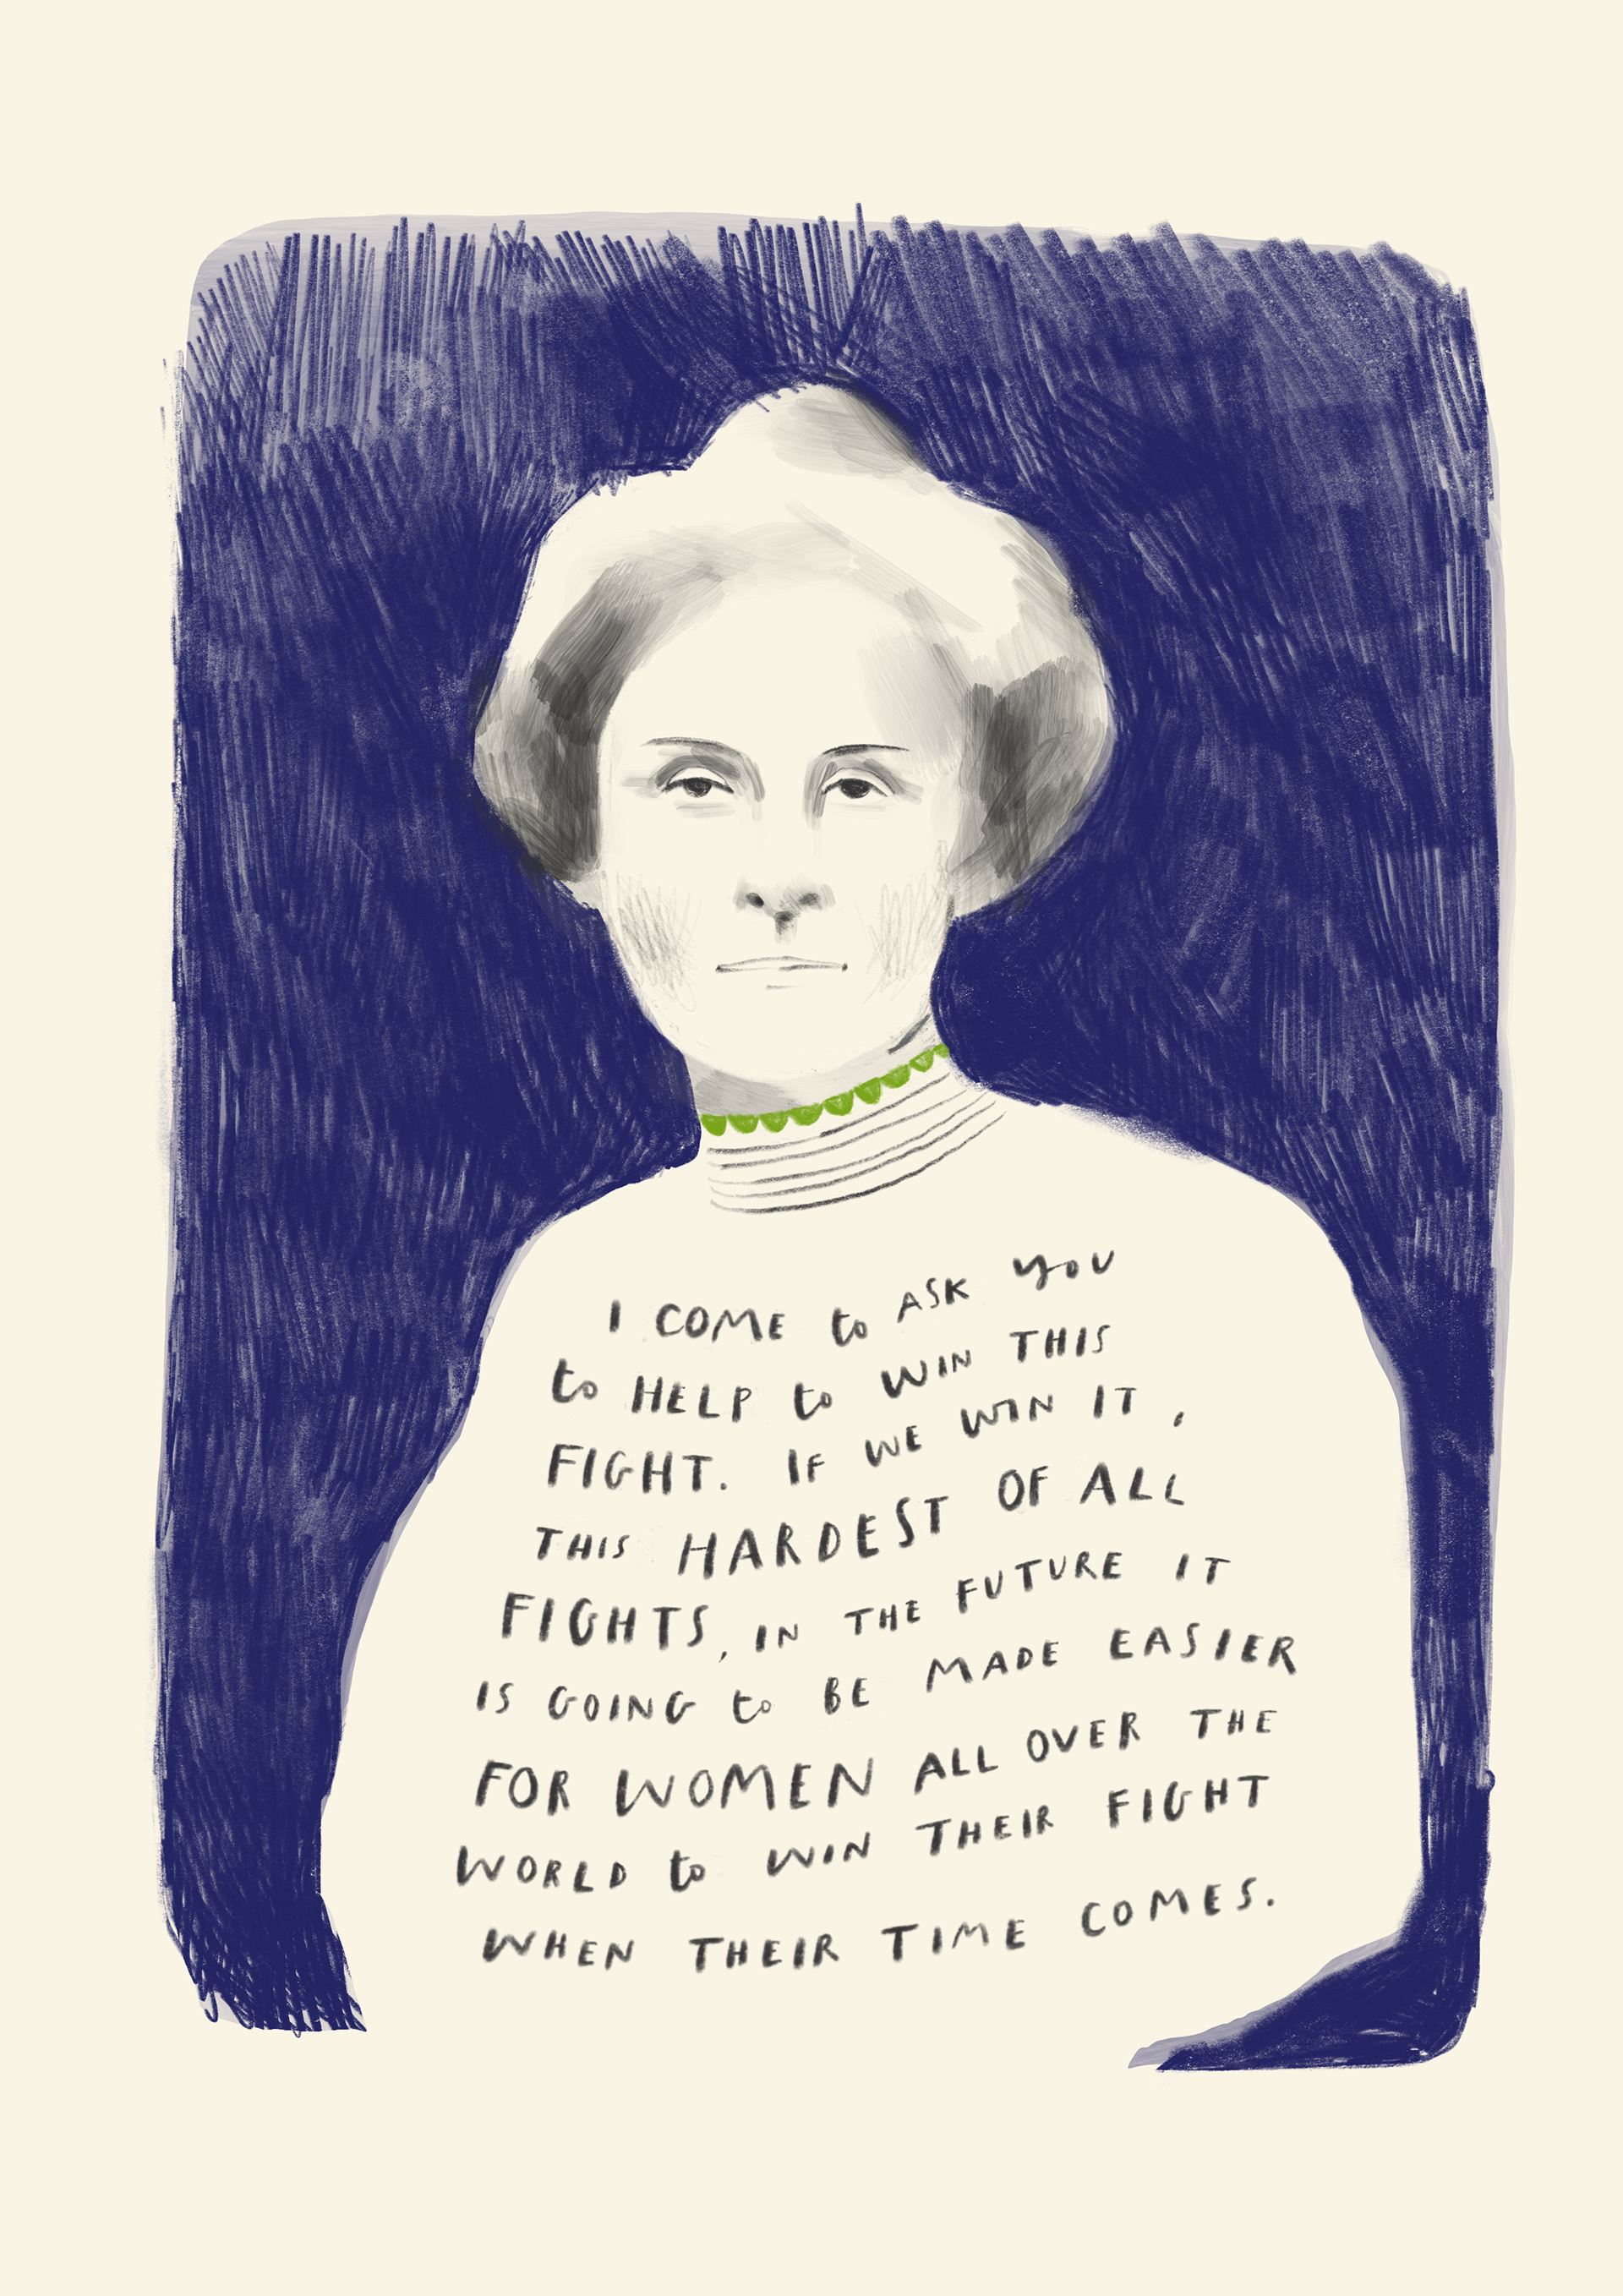 I COME to ASK YOU
to HELP to WIN THIS
FIGHT. IF WE WIN IT,
THIS HARDEST OF ALL
FIGHTS, IN THE FUTURE IT
IS GOING to BE MADE EASIER
FOR WOMEN ALL OVER THE
WORLD to WIN THEIR FIGHT
WHEN THEIR TIME COMES.